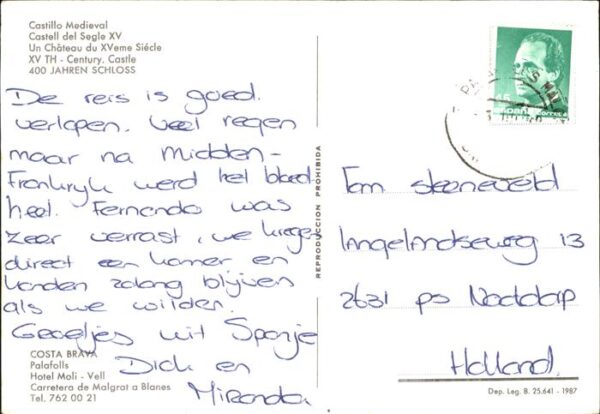 Castillo Medieval
Castell del Segle XV
Un Château du XVeme Siécle
XV TH - Century. Castle
400 JAHREN SCHLOSS
De reis is goed.
verlopen. Veel regen
maar na midden-
Frankryk werd het bleed
heel. Fernando was
zeer verrast, we kregen
direct een kamer en
konden zolang blijven
als we wilden.
Groetjes uit Spanje
Dick en
Miranda
COSTA BRAVA
Palafolls
Hotel Moli - Vell
Carretera de Malgrat a Blanes
Tel. 762 00 21
REPRODUCCION PROHIBIDA
45
correos
Tom Steeneveld
Langelandseweg 13
2631 ps Nootdorp
Holland.
Dep. Leg. B. 25.641 - 1987